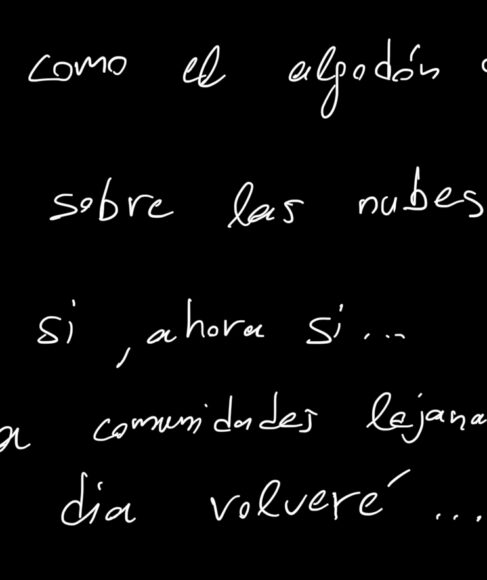 como el algodón
sobre las nubes
si, ahora si...
a comunidades lejana
dia volveré...